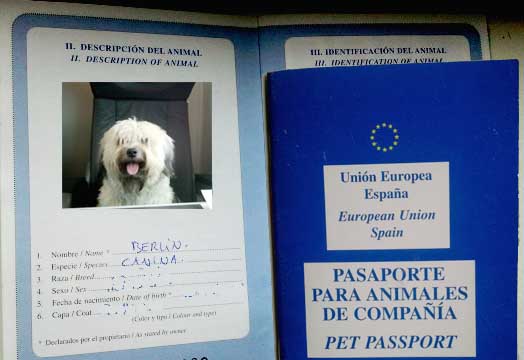 II. DESCRIPCIÓN DEL ANIMAL
II. DESCRIPTION OF ANIMAL
1. Nombre / Name * BERLÍN.
2. Especie / Species CANINA.
3. Raza / Breed
4. Sexo / Sex
5. Fecha de nacimiento / Date of birth *
6. Capa / Coat
(Color y tipo / Colour and type)
* Declarados por el propietario / As stated by owner
III. IDENTIFICACIÓN DEL ANIMAL
III. IDENTIFICATION OF ANIMAL
Unión Europea
España
European Union
Spain
PASAPORTE
PARA ANIMALES
DE COMPAÑÍA
PET PASSPORT